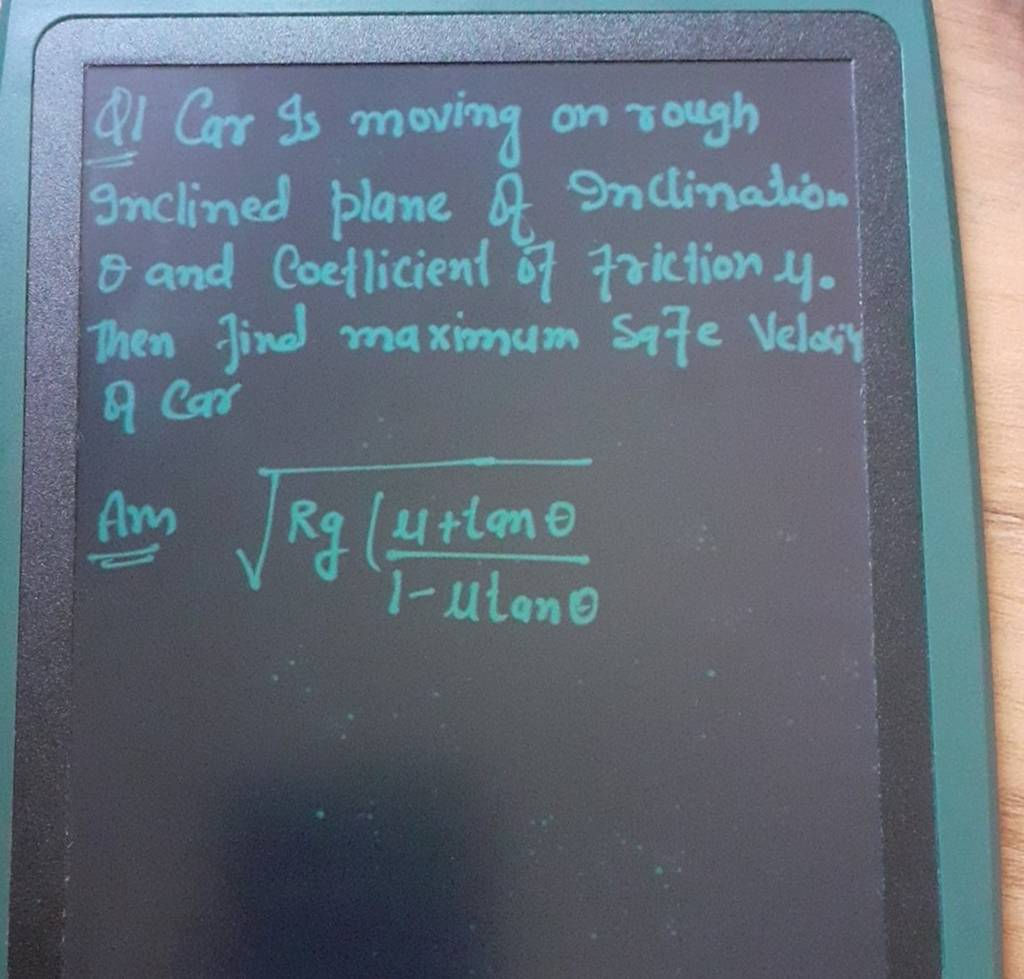 Q1 Car Is moving on rough
Inclined plane of Inclination
θ and Coefficient of friction μ.
Then find maximum Safe Velocity
of Car
Ans √Rg (μ+tanθ
1-μtanθ